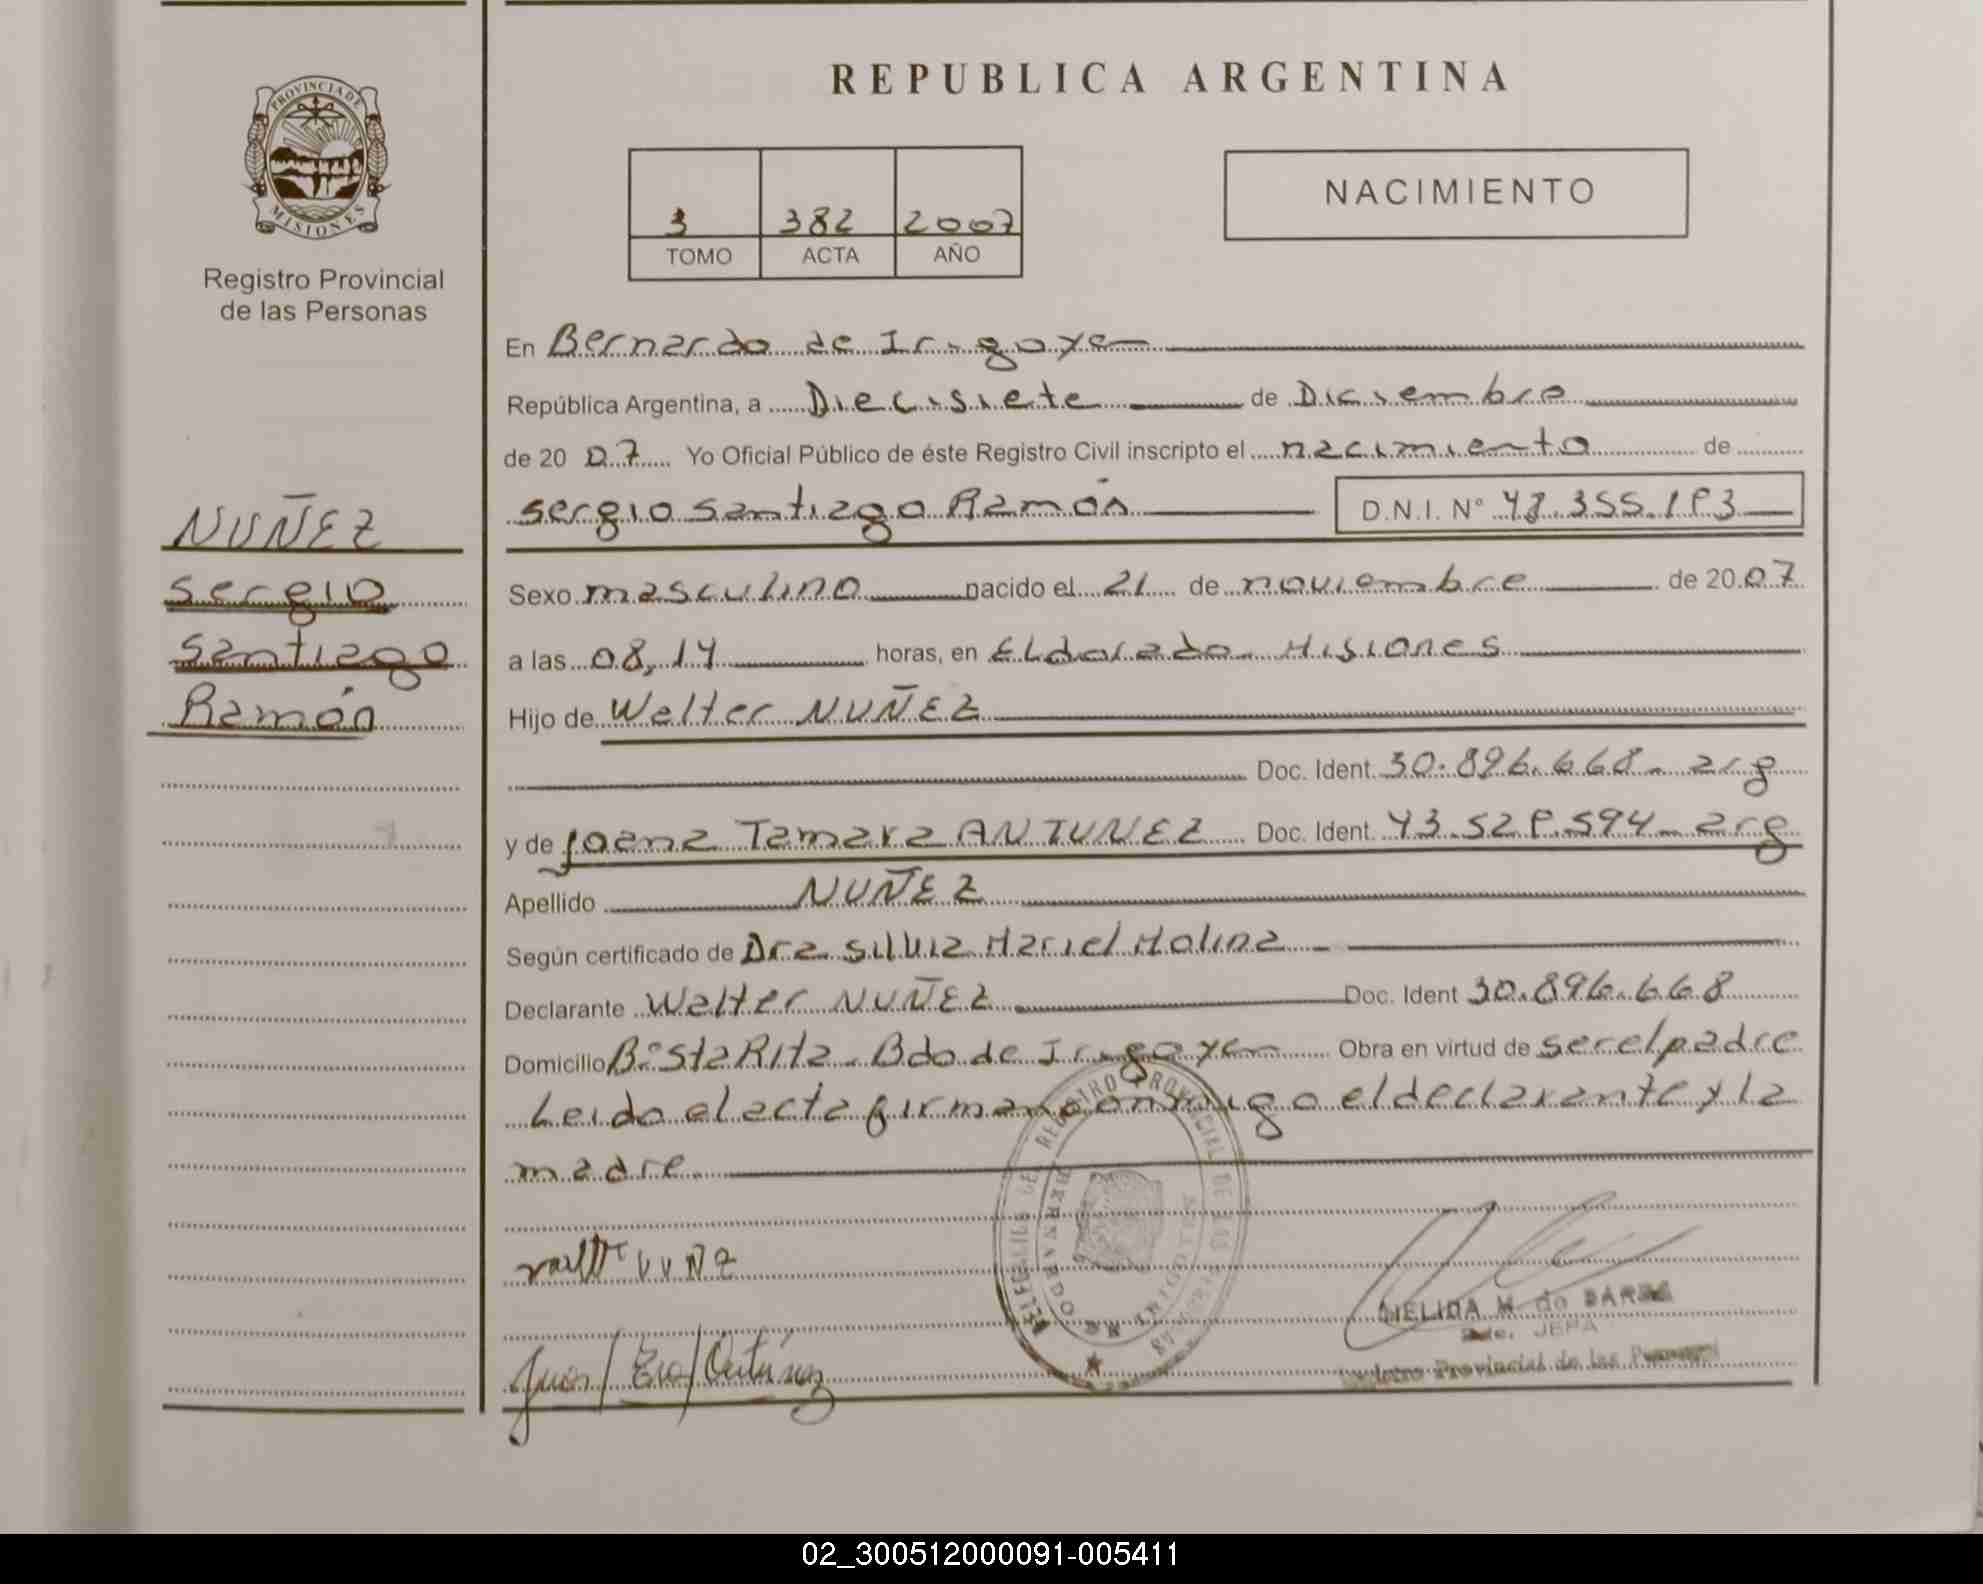 REPUBLICA ARGENTINA
PROVINCIA DE
MISIONES
Registro Provincial
de las Personas
3 382 2007
TOMO ACTA AÑO
NACIMIENTO
NUÑEZ
Sergio
Santiago
Ramón
En Bernardo de Irigoyen
República Argentina, a Diecisiete de Diciembre
de 20 07 Yo Oficial Público de éste Registro Civil inscripto el nacimiento de
Sergio Santiago Ramón D.N.I. Nº
Sexo masculino nacido el 21 de noviembre de 20 07
a las 08,14 horas, en Eldorado Misiones
Hijo de Walter NUÑEZ
Doc. Ident. 30.896.668 - arg
y de Joana Tamara ANTUNEZ Doc. Ident. - arg
Apellido NUÑEZ
Según certificado de Dra Silvia Mariel Molina
Declarante Walter NUÑEZ Doc. Ident 30.896.668
Domicilio Bº Sta Rita - Bdo de Irigoyen Obra en virtud de ser el padre
Leido el acta firman conmigo el declarante y la
madre
NELIDA M. do
JEFA
Provincial de las
REGISTRO PROVINCIAL DE LAS
BERNARDO
02_300512000091-005411